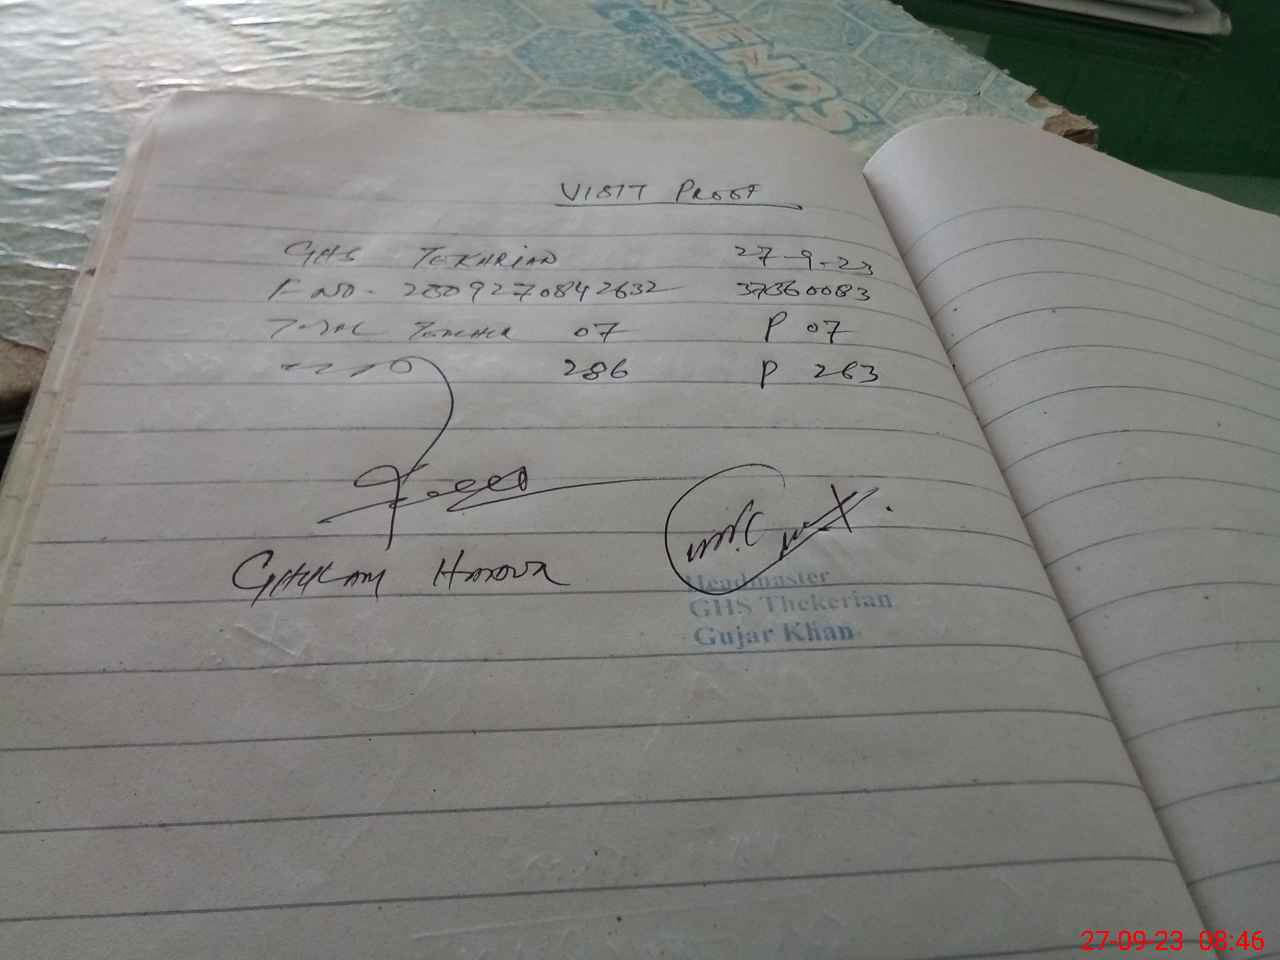 FRIENDS
VISIT PROOF
GHS TEKHRIAN 27-9-23
F NO- 2809270842632 37360083
TOTAL TEACHER 07 P 07
286 P 263
GHULAM
Headmaster
GHS Thekerian
Gujar Khan
27-09-23 08:46